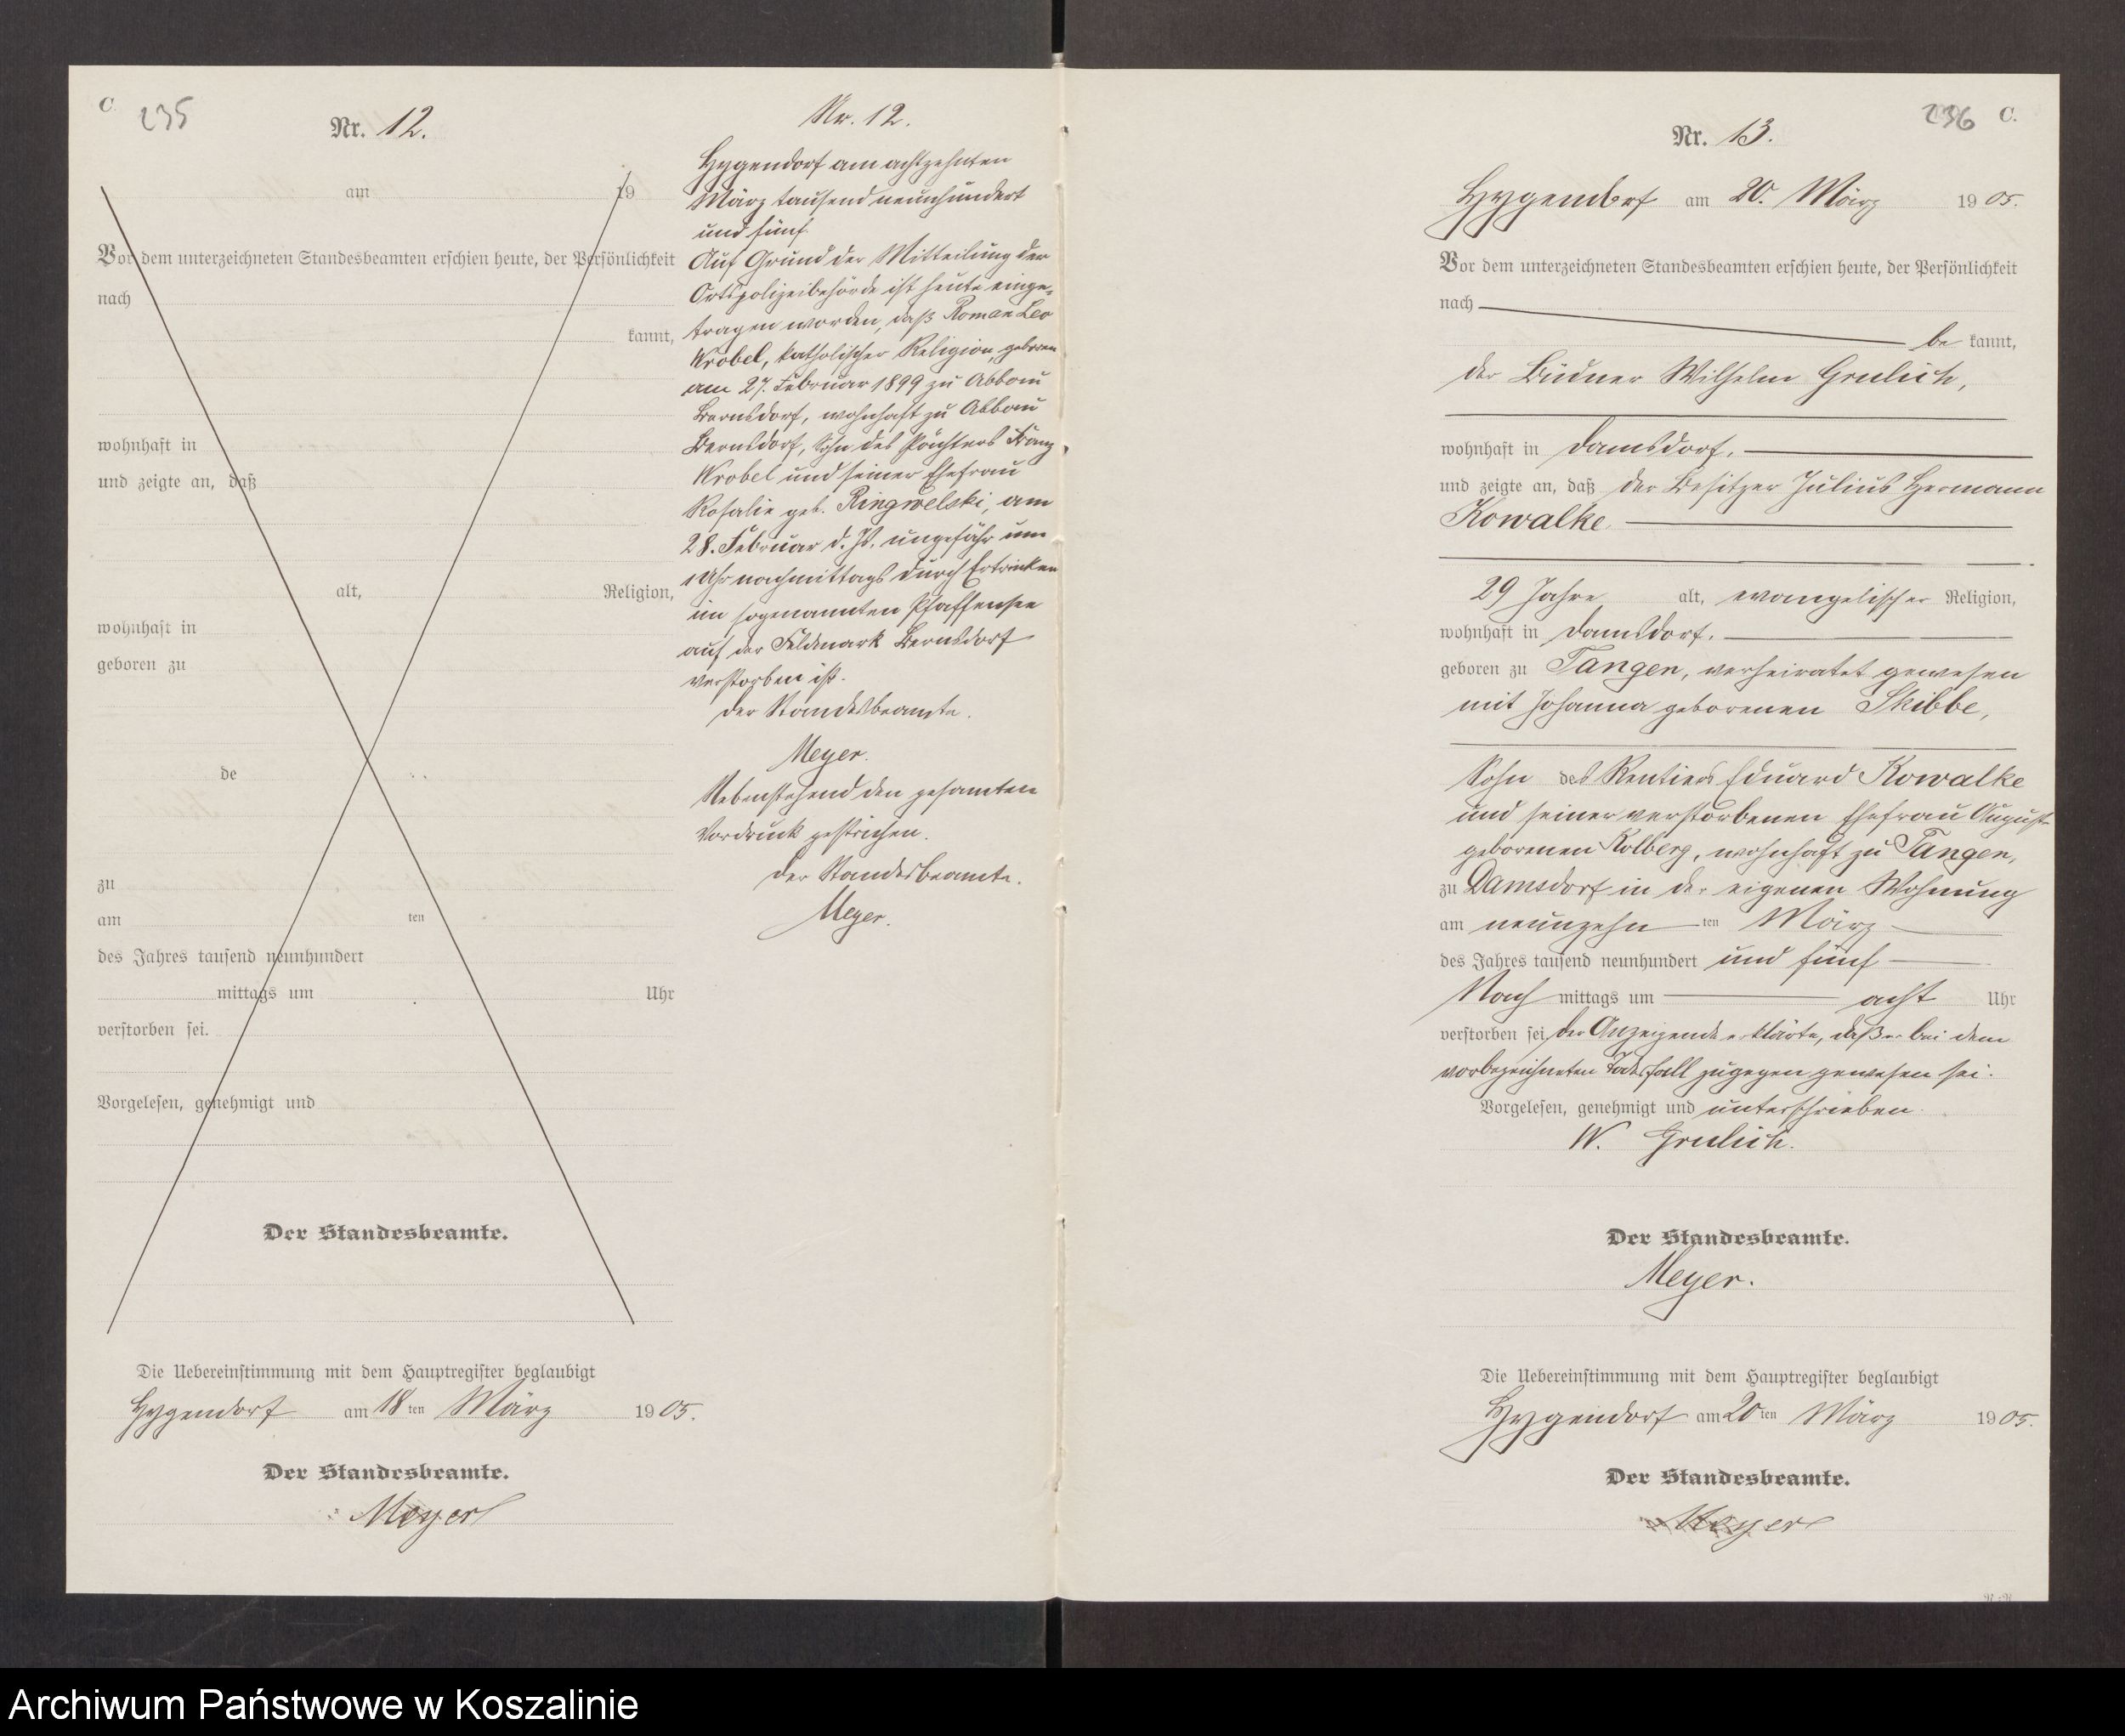 C
235
Nr. 12.
am 19
Vor dem unterzeichneten Standesbeamten erschien heute, der Persönlichkeit
nach
kannt,
wohnhaft in
und zeigte an, daß
alt, Religion,
wohnhaft in
geboren zu
de
zu
am ten
des Jahres tausend neunhundert
mittags um Uhr
verstorben sei.
Vorgelesen, genehmigt und
Der Standesbeamte.
Die Uebereinstimmung mit dem Hauptregister beglaubigt
Hygendorf am 18 ten März 1905.
Der Standesbeamte.
Meyer
Nr. 12.
Hygendorf am achtzehnten
März tausend neunhundert
und fünf.
Auf Grund der Mitteilung der
Ortspolizeibehörde ist heute einge-
tragen worden, daß Roman Leo
Wrobel, katholischer Religion, geboren
am 27. Februar 1899 zu Abbau
Bernsdorf, wohnhaft zu Abbau
Bernsdorf, Sohn des Pächters Franz
Wrobel und seiner Ehefrau
Rosalie geb. Ringwelski, am
28. Februar d. Js. ungefähr um
1 Uhr nachmittags durch Ertrinken
im sogenannten Pfaffensee
auf der Feldmark Bernsdorf
verstorben ist.
Der Standesbeamte.
Meyer.
Nebenstehend den gesamten
Vordruck gestrichen.
Der Standesbeamte.
Meyer.
236 C.
Nr. 13.
Hygendorf am 20. März 1905.
Vor dem unterzeichneten Standesbeamten erschien heute, der Persönlichkeit
nach
be kannt,
der Büdner Wilhelm Grulich,
wohnhaft in Damsdorf.
und zeigte an, daß der Besitzer Julius Hermann
Kowalke
29 Jahre alt, evangelischer Religion,
wohnhaft in Damsdorf.
geboren zu Tangen, verheiratet gewesen
mit Johanna geborenen Skibbe,
Sohn des Rentiers Eduard Kowalke
und seiner verstorbenen Ehefrau August
geborenen Kolberg, wohnhaft zu Tangen,
zu Damsdorf in der eigenen Wohnung
am neunzehn ten März
des Jahres tausend neunhundert und fünf
Nach mittags um acht Uhr
verstorben sei, der Anzeigende erklärte, daß er bei dem
vorbezeichneten Todesfall zugegen gewesen sei.
Vorgelesen, genehmigt und unterschrieben.
W. Grulich.
Der Standesbeamte.
Meyer.
Die Uebereinstimmung mit dem Hauptregister beglaubigt
Hygendorf am 20 ten März 1905.
Der Standesbeamte.
Meyer
Archiwum Państwowe w Koszalinie